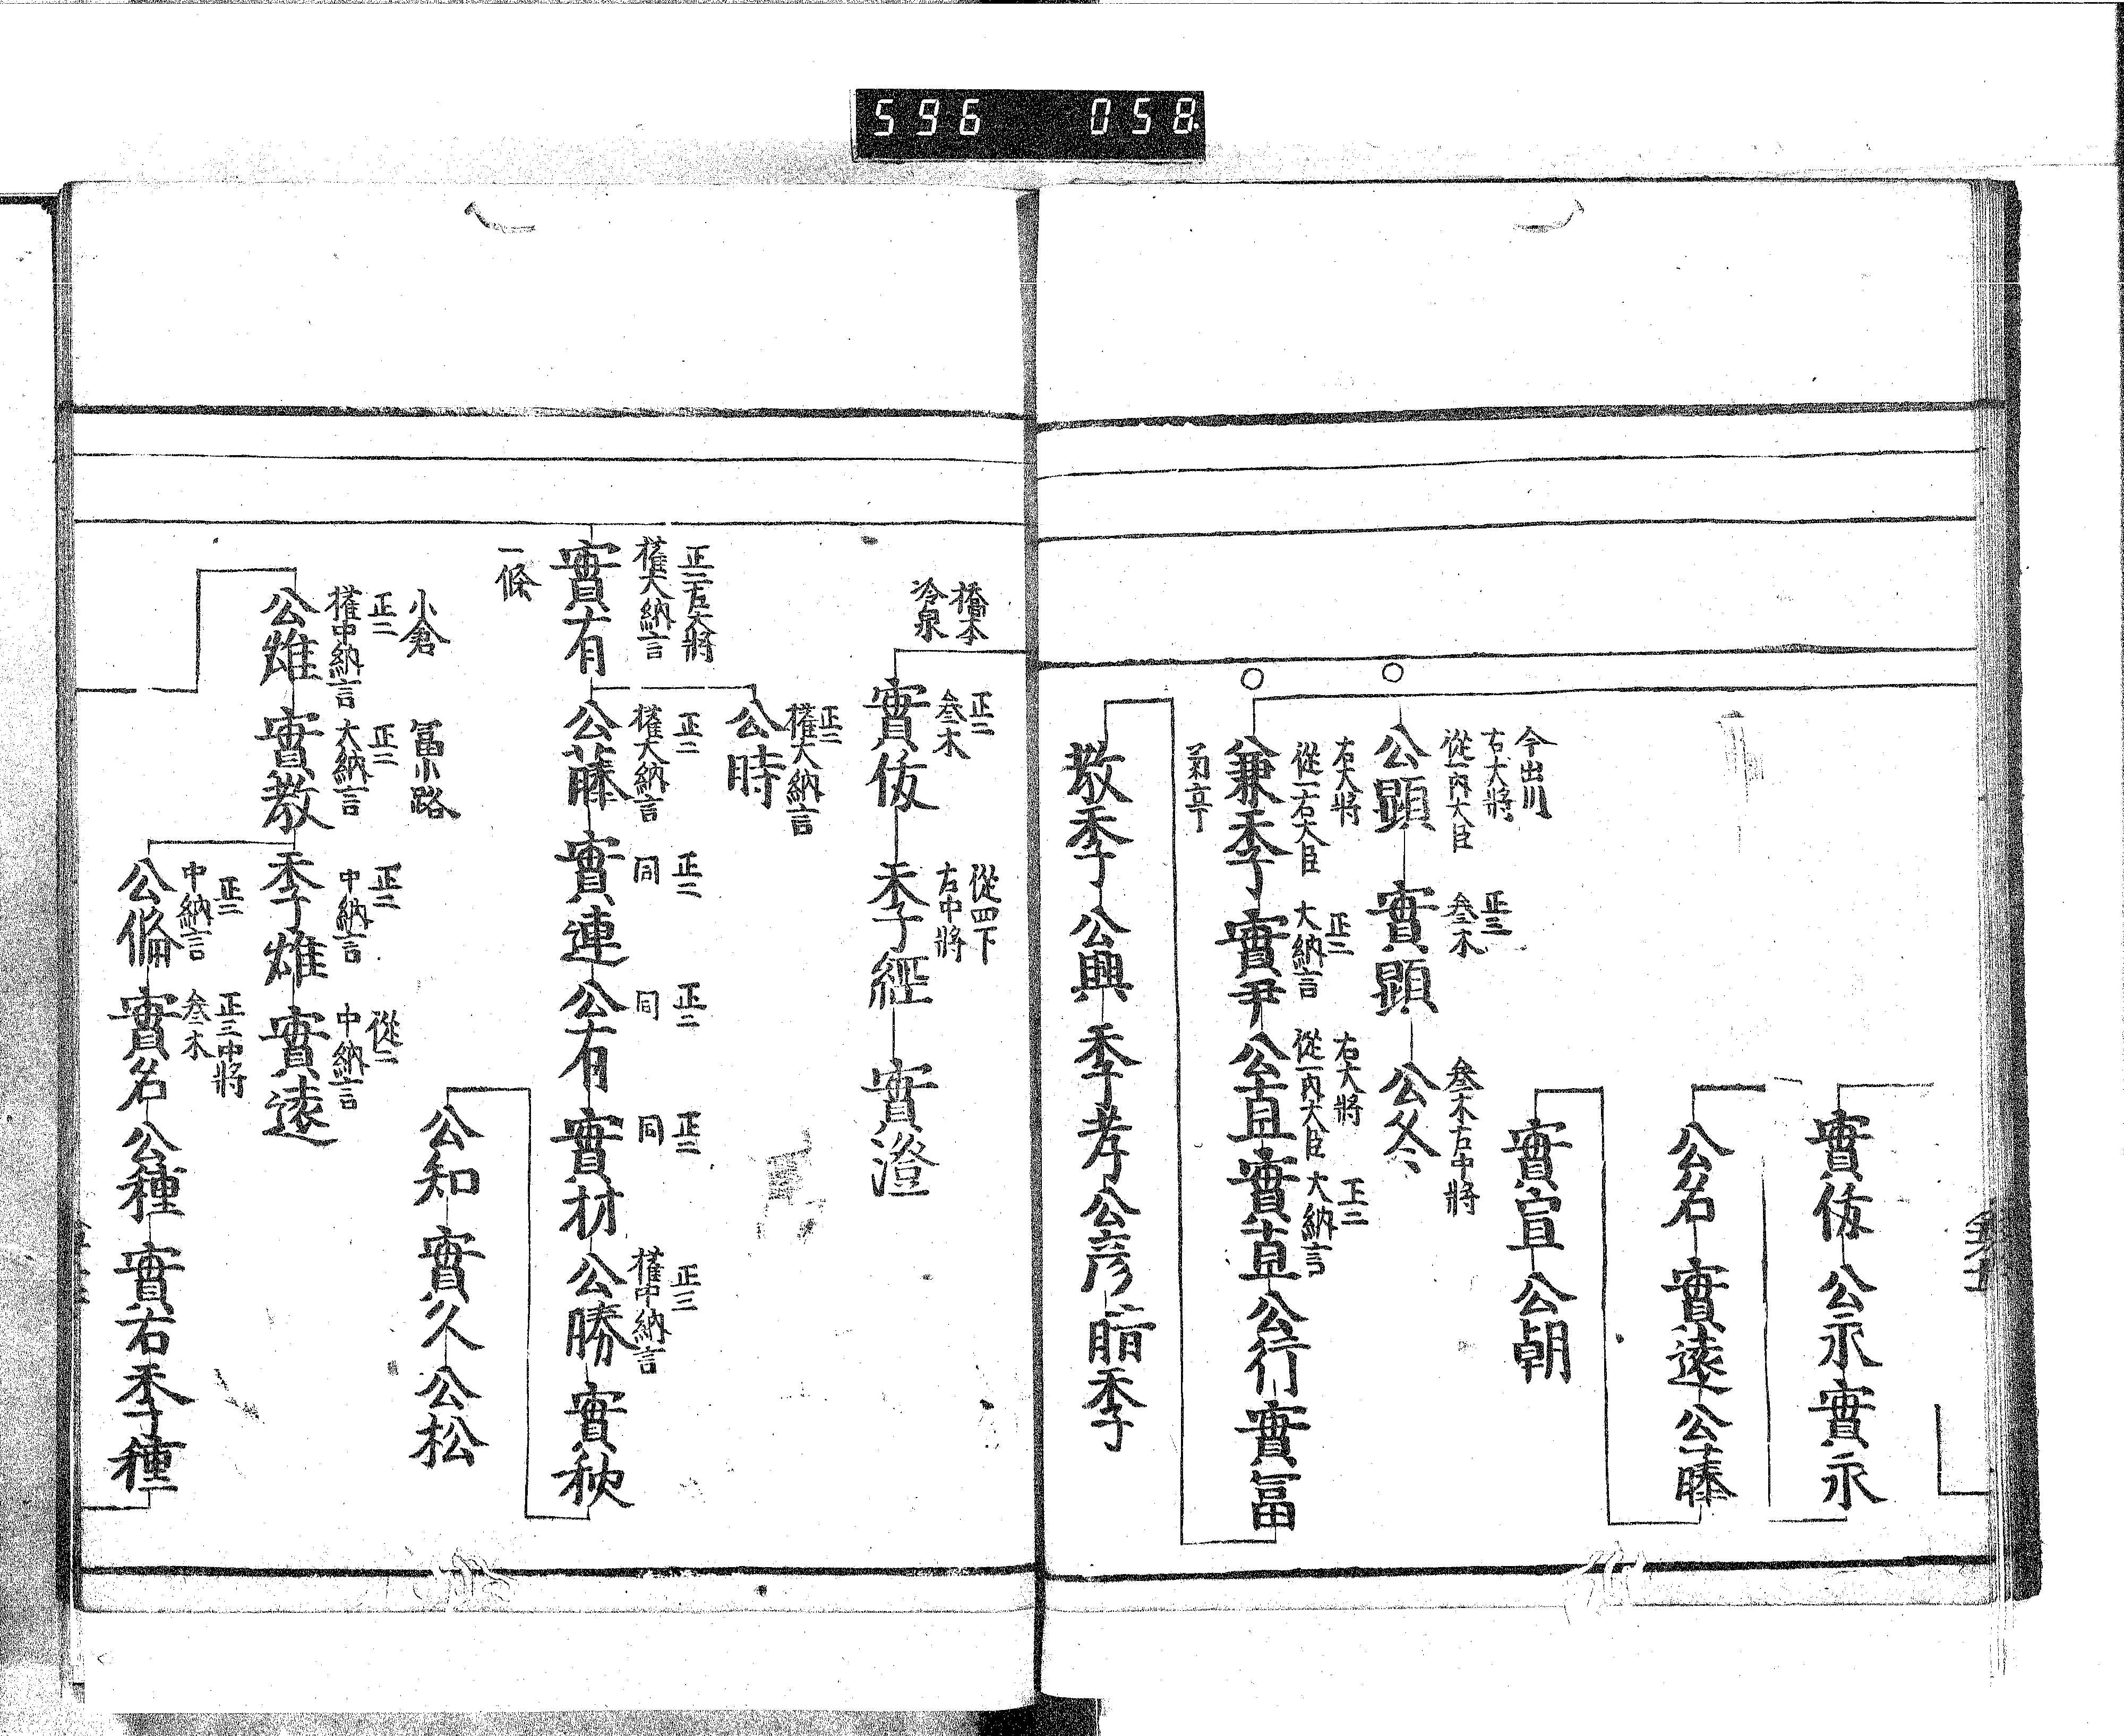 596 058
實俊 公永 實永
公名 實遠 公藤
實宣 公朝
今出川
右大將
從一內大臣
公顯 實顯 公冬
正三
叄木
叄木右中將
右大將
從一右大臣
兼季 實尹 公直 實直 公行 實冨
正二
大納言
右大將
從一內大臣
正二
大納言
菊亭
教季 公興 季孝 公彥 晴季
橋本
冷泉
正二
叄木
實俊 季經 實澄
從四下
右中將
正二
權大納言
公時
正二右大將
權大納言
實有
一條
公藤 實連 公有 實材 公勝 實秋
正二
權大納言
正二
同
正二
同
正二
同
正三
權中納言
公知 實久 公松
小倉
正二
權中納言
公雄 實教 季雄 實遠
冨小路
正二
大納言
正二
中納言
從二
中納言
正二
中納言
公脩 實名 公種 實右 季種
正三中將
叄木